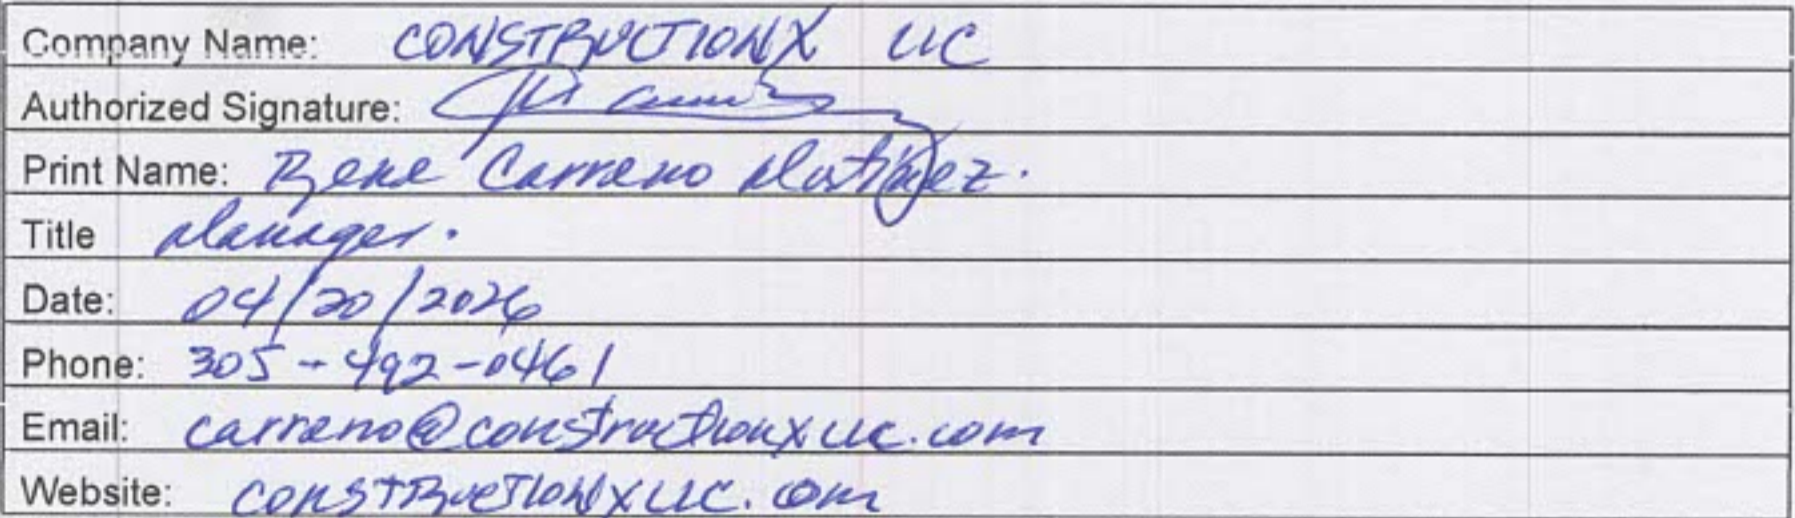 Company Name: CONSTRUCTIONX LLC
Authorized Signature:
Print Name: Rene Carreno Martinez.
Title Manager.
Date: 04/20/2026
Phone: 305-492-0461
Email: carreno@constructionxllc.com
Website: CONSTRUCTIONXLLC.com